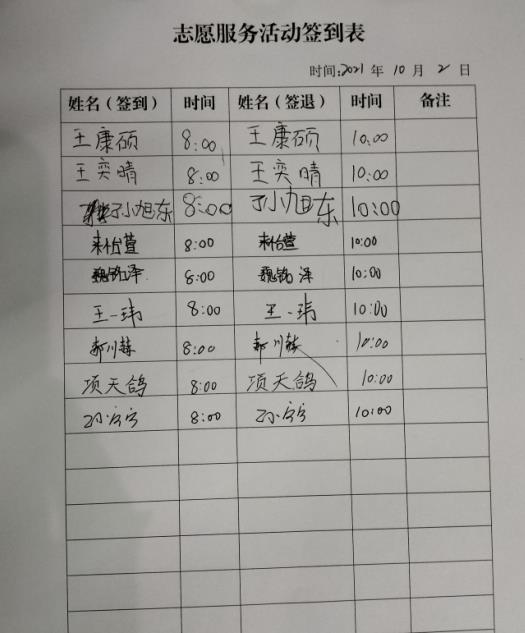 志愿服务活动签到表
时间:2021 年 10 月 2 日
姓名（签到） 时间 姓名（签退） 时间 备注
王康硕 8:00 王康硕 10:00
王奕晴 8:00 王奕晴 10:00
孙旭东 8:00 孙旭东 10:00
8:00 10:00
魏铭泽 8:00 魏铭泽 10:00
王一玮 8:00 王一玮 10:00
8:00 10:00
项天鸽 8:00 项天鸽 10:00
孙宁宁 8:00 孙宁宁 10:00